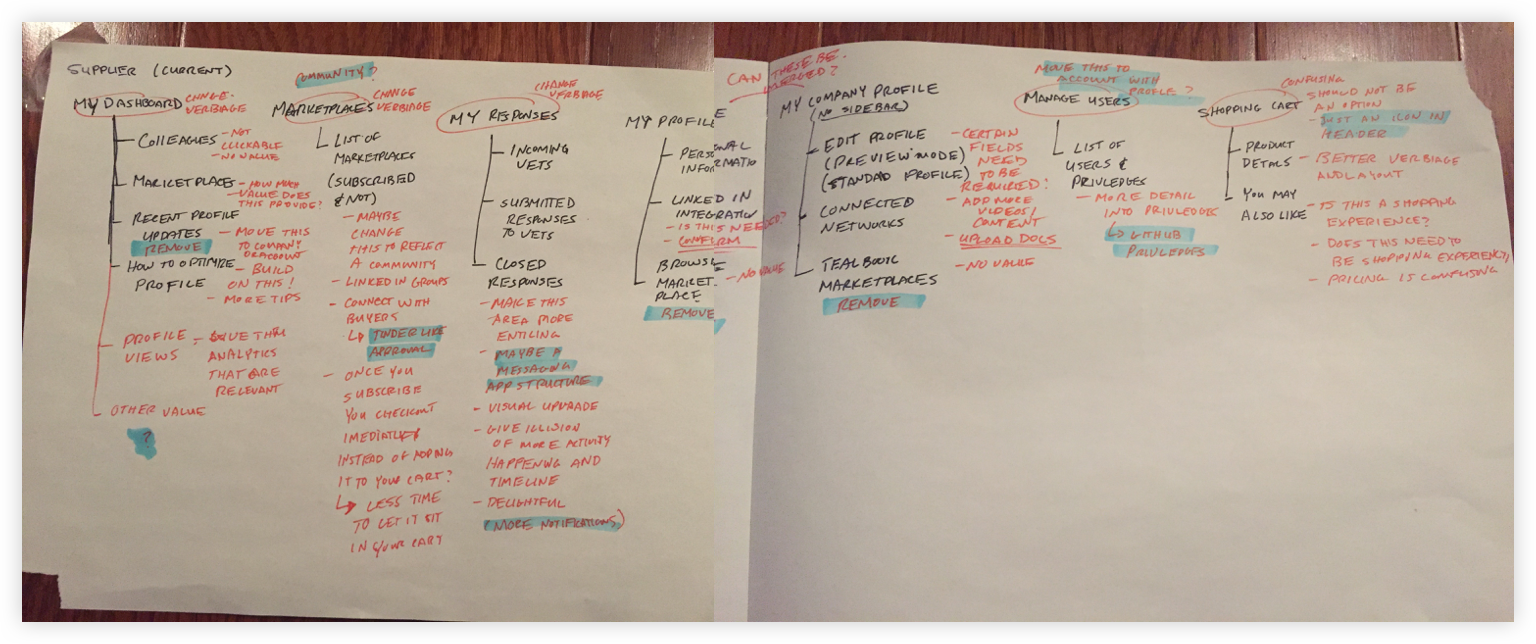 SUPPLIER (CURRENT)
MY DASHBOARD
CHNGE
VERBIAGE
COLLEAGUES
- NOT
CLICKABLE
- NO VALUE
MARKETPLACES
- HOW MUCH
VALUE DOES
THIS PROVIDE?
RECENT PROFILE
UPDATES
REMOVE
- MOVE THIS
TO COMPANY
OR ACCOUNT
HOW TO OPTIMIZE
PROFILE
- BUILD
ON THIS!
- MORE TIPS
PROFILE
VIEWS
- GIVE THEM
ANALYTICS
THAT ARE
RELEVANT
OTHER VALUE
?
COMMUNITY?
MARKETPLACES
CHANGE
VERBIAGE
LIST OF
MARKETPLACES
(SUBSCRIBED
& NOT)
- MAYBE
CHANGE
THIS TO REFLECT
A COMMUNITY
- LINKED IN GROUPS
- CONNECT WITH
BUYERS
↳ TINDER LIKE
APPROVAL
- ONCE YOU
SUBSCRIBE
YOU CHECKOUT
IMEDIATLEY
INSTEAD OF ADDING
IT TO YOUR CART?
↳ LESS TIME
TO LET IT SIT
IN YOUR CART
MY RESPONSES
CHANGE
VERBIAGE
INCOMING
VETS
SUBMITTED
RESPONSES
TO VETS
CLOSED
RESPONSES
- MAKE THIS
AREA MORE
ENTICING
- MAYBE A
MESSAGING
APP STRUCTURE
- VISUAL UPGRADE
- GIVE ILLISION
OF MORE ACTIVITY
HAPPENING AND
TIMELINE
- DELIGHTFUL
(MORE NOTIFICATIONS)
CAN THESE BE
MERGED?
MY PROFILE
PERSONAL
INFORMATIO
LINKED IN
INTEGRATION
- IS THIS NEEDED?
- CONFIRM
BROWSE
MARKET
PLACE
- NO VALUE
REMOVE
MY COMPANY PROFILE
(NO SIDEBAR)
EDIT PROFILE
(PREVIEW MODE)
(STANDAD PROFILE)
- CERTAIN
FIELDS
NEED
TO BE
REQUIRED!
- ADD MORE
VIDEOS/
CONTENT
- UPLOAD DOCS
CONNECTED
NETWORKS
TEALBOOK
MARKETPLACES
- NO VALUE
REMOVE
MOVE THIS TO
ACCOUNT WITH
PROFILE?
MANAGE USERS
LIST OF
USERS &
PRIVLEDGES
- MORE DETAIL
INTO PRIVLEDGES
↳ GITHUB
PRIVLEDGES
SHOPPING CART
CONFUSING
SHOULD NOT BE
AN OPTION
- JUST AN ICON IN
HEADER
PRODUCT
DETAILS
- BETTER VERBIAGE
AND LAYOUT
YOU MAY
ALSO LIKE
- IS THIS A SHOPPING
EXPERIENCE?
- DOES THIS NEED TO
BE SHOPPING EXPERIENCE,
- PRICING IS CONFUSING